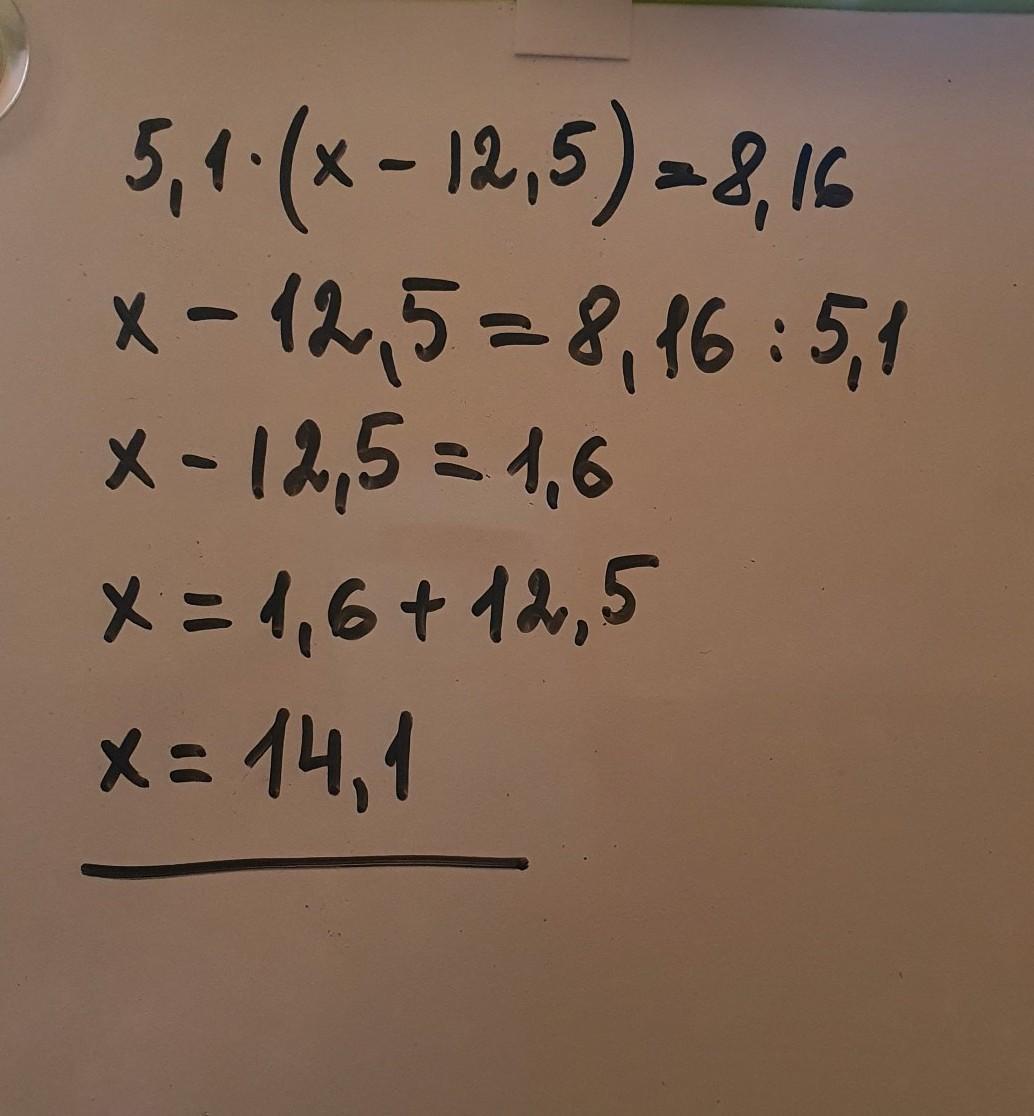 5,1·(x - 12,5) = 8,16
x - 12,5 = 8,16 : 5,1
x - 12,5 = 1,6
x = 1,6 + 12,5
x = 14,1